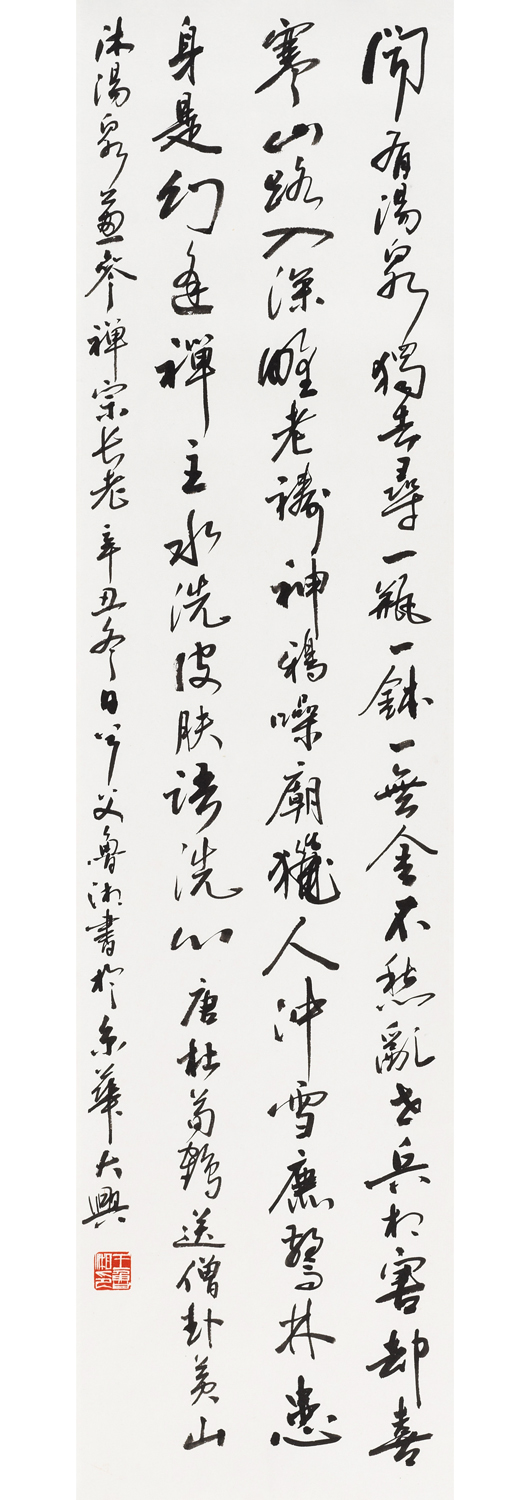 聞有湯泉獨去尋一瓶一鉢一無金不愁亂世兵相害却喜
寒山路入深野老禱神鴉噪廟獵人沖雪鹿驚林患
身是幻逢禪主水洗皮肤語洗心唐杜荀鶴送僧赴黃山
沐湯泉兼參禪宗长老辛丑冬日父魯湘書於京華大興
王魯湘印